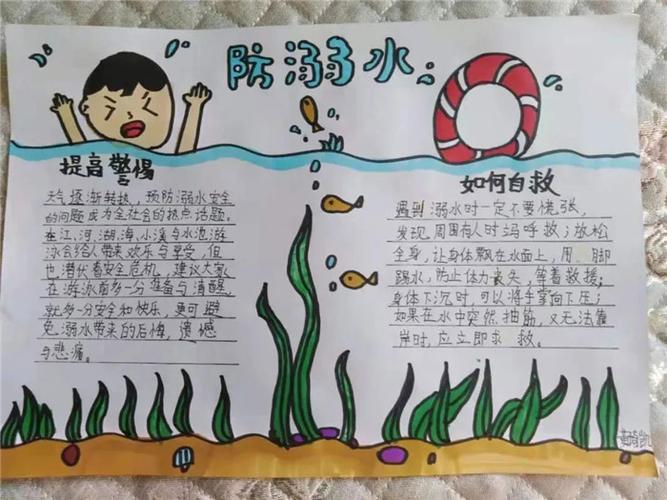 防溺水
提高警惕
天气逐渐转热，预防溺水安全
的问题成为全社会的热点话题。
在江、河、湖海、小溪与水池游
泳会给人带来欢乐与享受，但
也潜伏着安全危机，建议大家
在游泳前多一分准备与清醒
就多一分安全和快乐，更可避
免溺水带来的后悔，遗憾
与悲痛。
如何自救
遇到溺水时一定不要慌张，
发现周围有人时马呼救；放松
全身，让身体飘在水面上，用 脚
踢水，防止体力丧失，等着救援；
身体下沉时，可以将手掌向下压；
如果在水中突然抽筋，又无法靠
岸时，应立即求救。